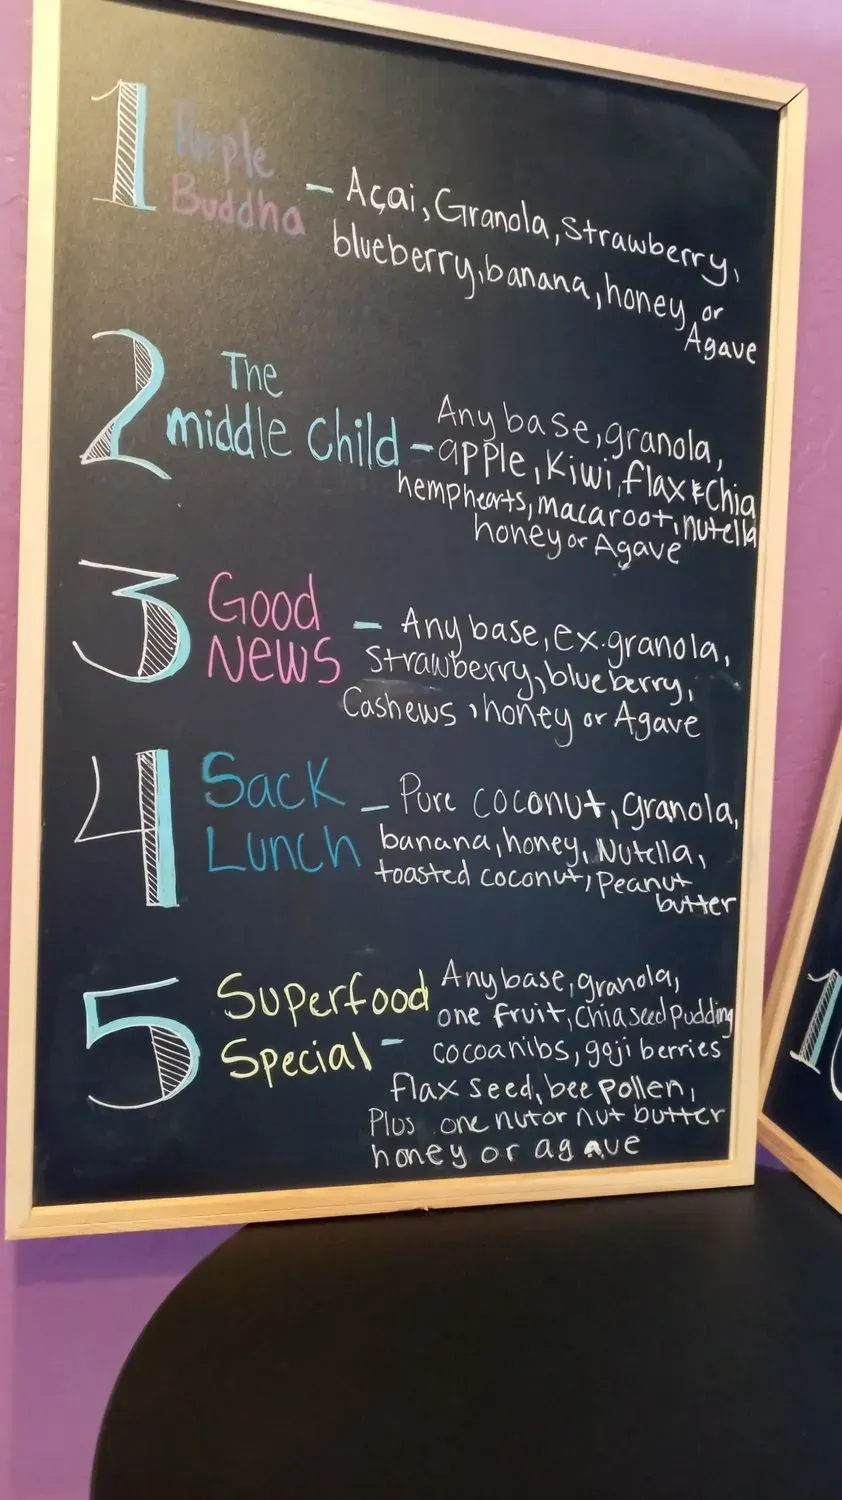 1 Purple
Buddha - Açai, Granola, Strawberry,
blueberry, banana, honey or
Agave
2 The
middle Child - Any base, granola,
apple, Kiwi, flax & Chia
hemphearts, macaroot, nutella
honey or Agave
3 Good
News - Any base, ex. granola,
Strawberry, blueberry,
Cashews, honey or Agave
4 Sack
Lunch - Pure coconut, granola,
banana, honey, Nutella,
toasted coconut, Peanut
butter
5 Superfood
Special - Any base, granola,
one fruit, Chia seed Pudding
cocoanibs, goji berries
flax seed, bee pollen,
Plus one nut or nut butter
honey or agave